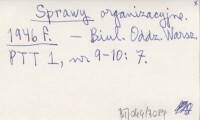 Sprawy organizacyjne.
1946 r. – Biul. Oddz. Warsz.
PTT 1, nr 9-10: 7.